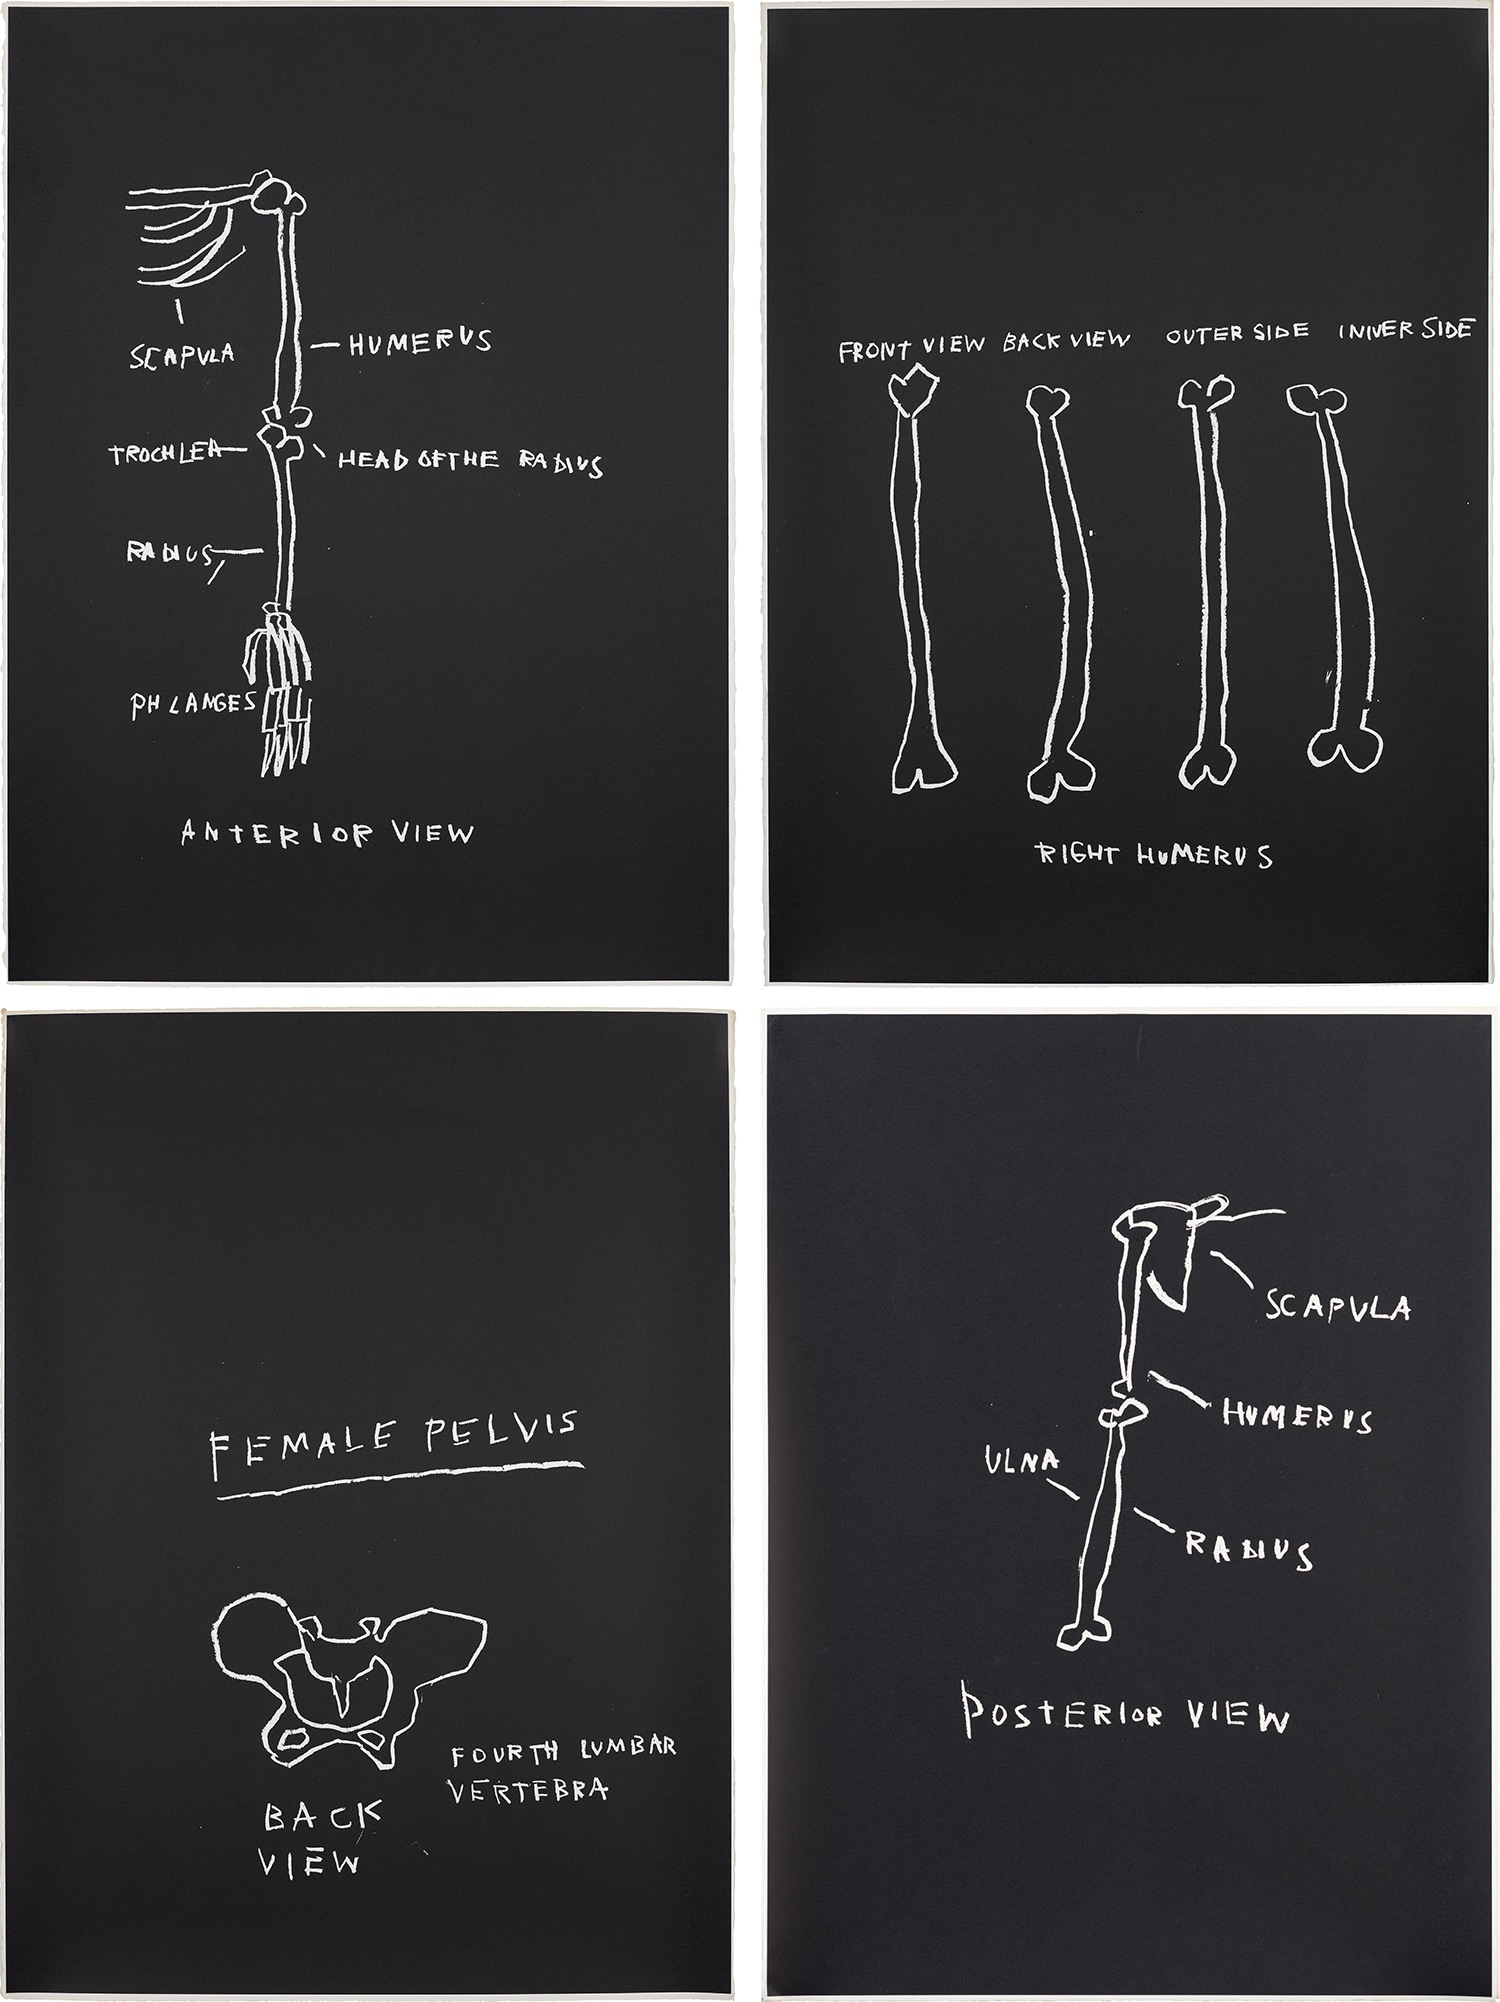 SCAPULA
HUMERUS
TROCHLEA
HEAD OF THE RADIUS
RADIUS
PHLANGES
ANTERIOR VIEW
FRONT VIEW BACK VIEW OUTER SIDE INNER SIDE
RIGHT HUMERUS
FEMALE PELVIS
FOURTH LUMBAR
VERTEBRA
BACK
VIEW
SCAPULA
HUMERUS
ULNA
RADIUS
POSTERIOR VIEW